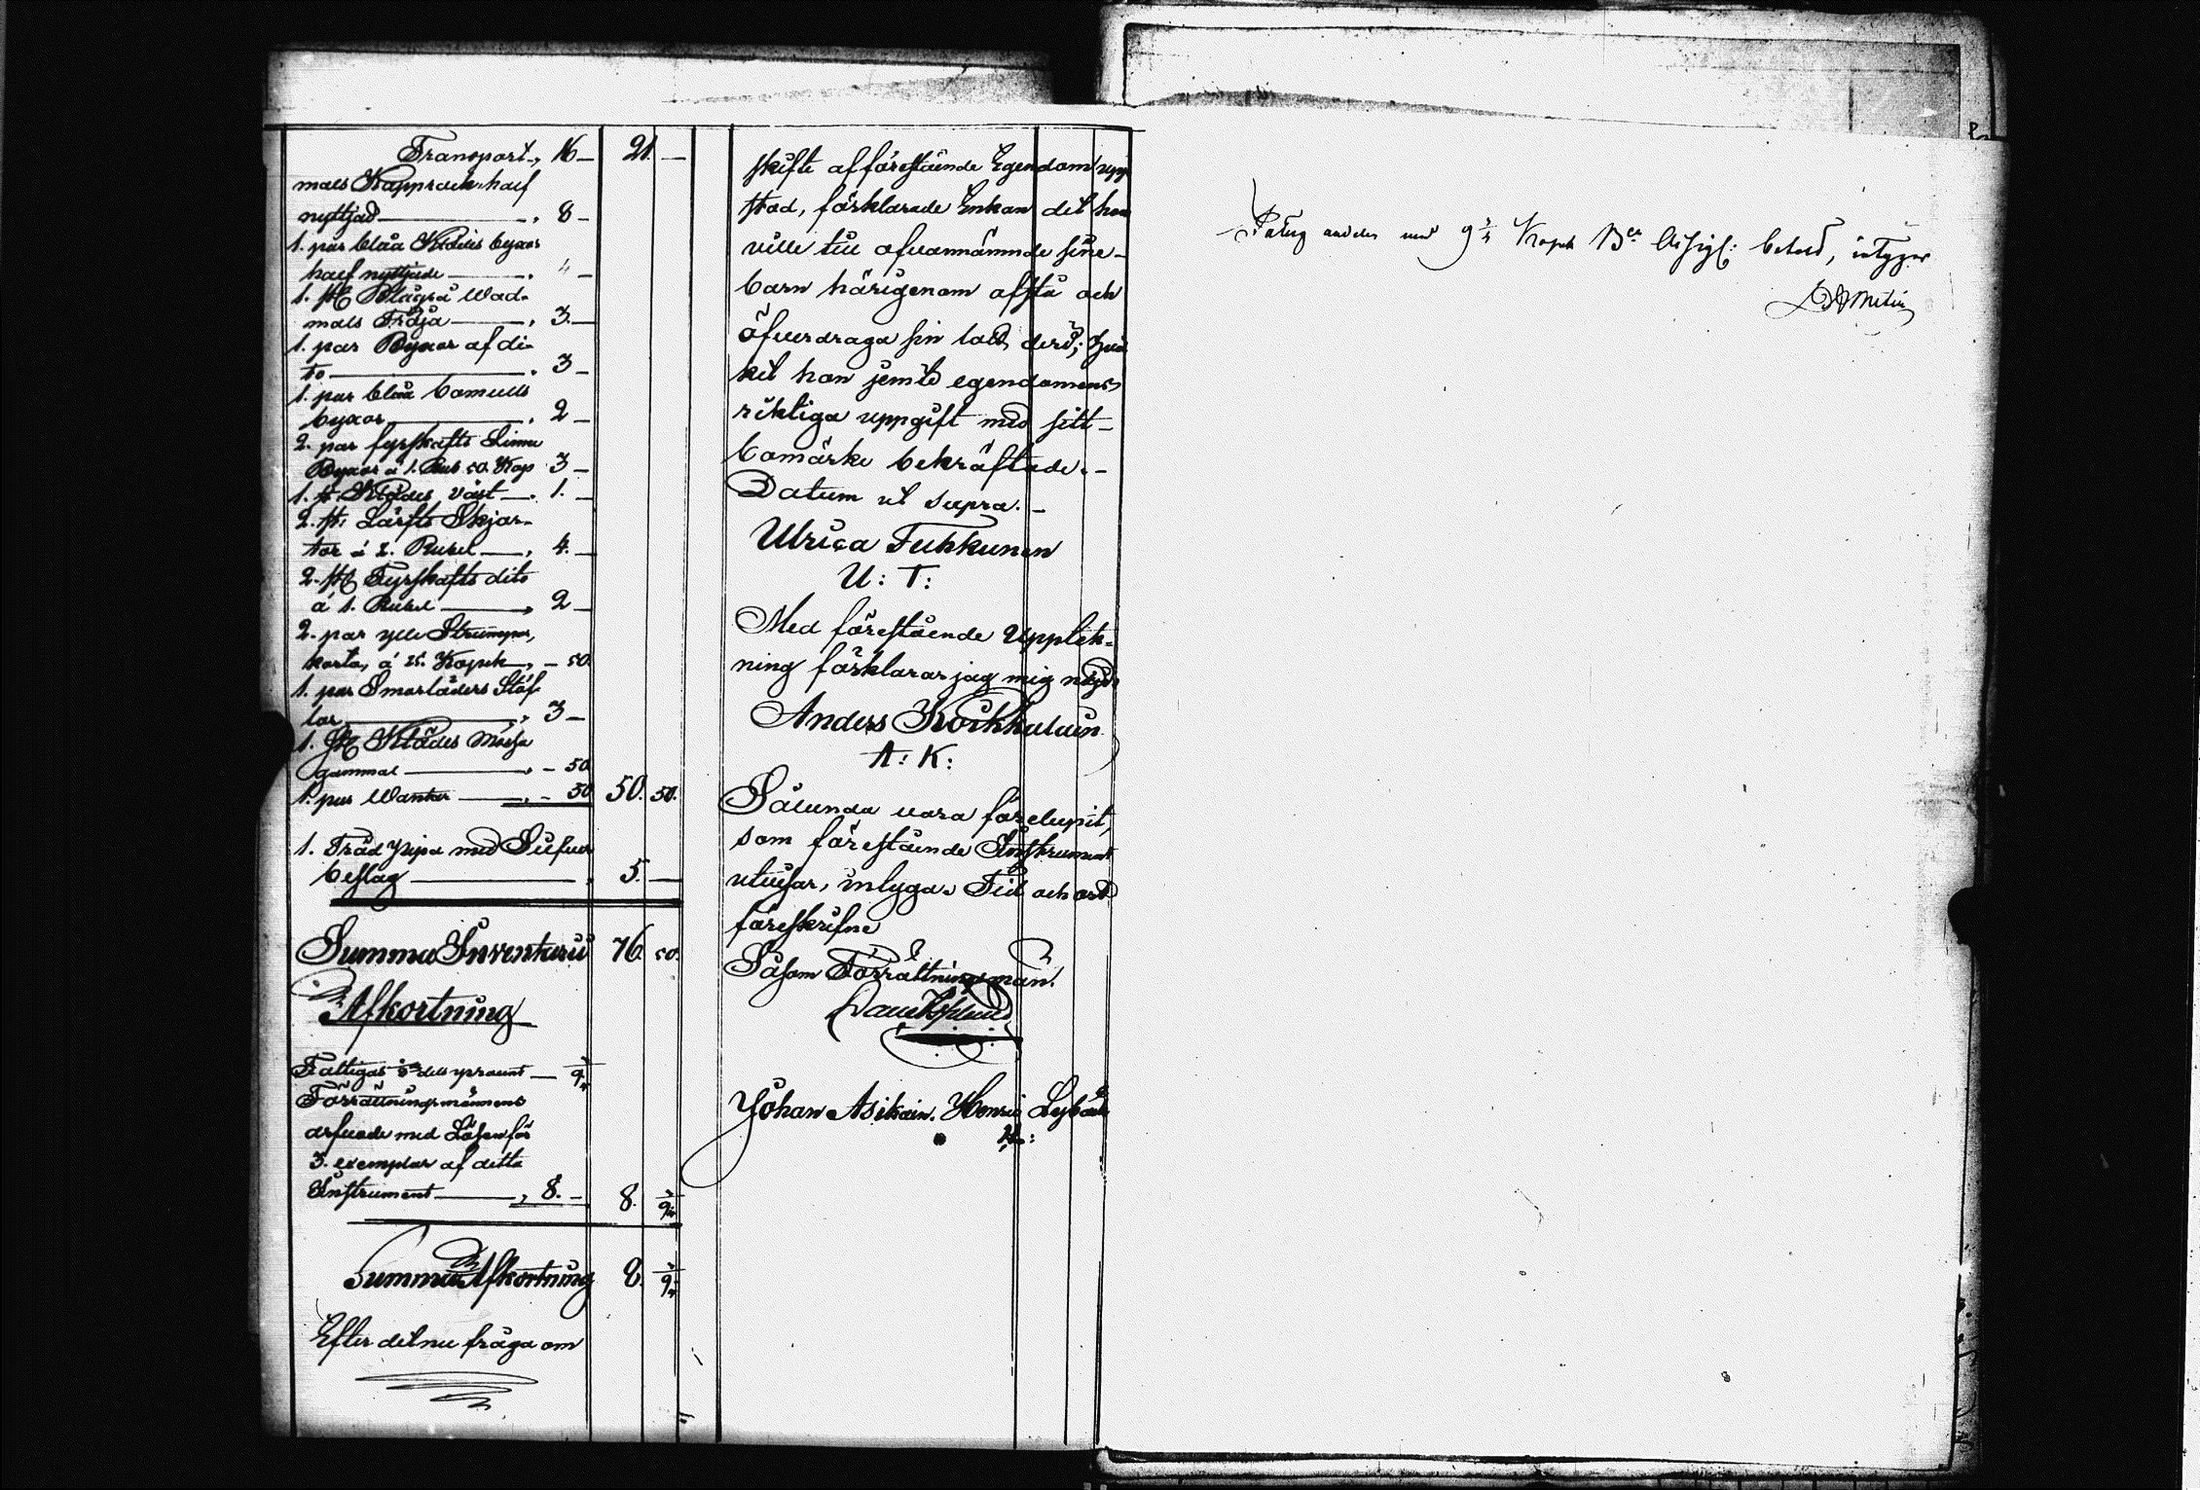 Transport „ 16 — 21. —
mals Kapprock half
nyttjad — „ 8 —
1. par blåa Klädes byxor
half nyttjade — „ 4 —
1. st. Blågrå Wad-
mals Tröja — „ 3. —
1. par Byxor af di-
to — „ 3 —
1. par blåa bomulls
byxor — „ 2 —
2. par fyrskafts Linne
Byxor á 1. Rub 50. Kop 3 —
1. st. Klädes väst — „ 1. —
2. st. Lärfts Skjor-
tor á 2. Rubel — „ 4. —
2. st. Fyrskafts dito
á 1. Rubel — „ 2 —
2. par ylle Strumpor,
korta, á 25. Kopek „ — 50.
1. par Smorläders Stöf-
lar — „ 3 —
1. st. Klädes Mössa
gammal — „ — 50
1. par Wantar — „ — 50 50. 50.
1. Träd pipa med Silfver
beslag — „ 5. —
Summa Inventarii 76. 50.
Afkortning
Fattigas procent —
Förrättningsmännens
arfvode med Lösen för
3. exemplar af detta
Instrument — „ 8. — 8.
Summa Afkortning 8.
Efter det nu fråga om
skifte af förestående Egendom upp
stod, förklarade Enkan det hon
ville till ofvannämnde sine
barn härigenom afstå och
öfverdraga sin lott deri; hvil
ket hon jemte egendomens
riktiga uppgift med sitt
bomärke bekräftade. —
Datum ut supra. —
Ulrica Tuhkunen
U: T:
Med förestående Upptek-
ning förklarar jag mig nöjd.
Anders Koikkulain
A: K:
Sålunda vara förelupit,
som förestående Instrument
utvisar, intyga. Tid och ort
föreskrifne
Såsom Förrättningsman.
Johan Asikain. Henric
andelen med 9 Kopek B:co Assign: betald, intygar